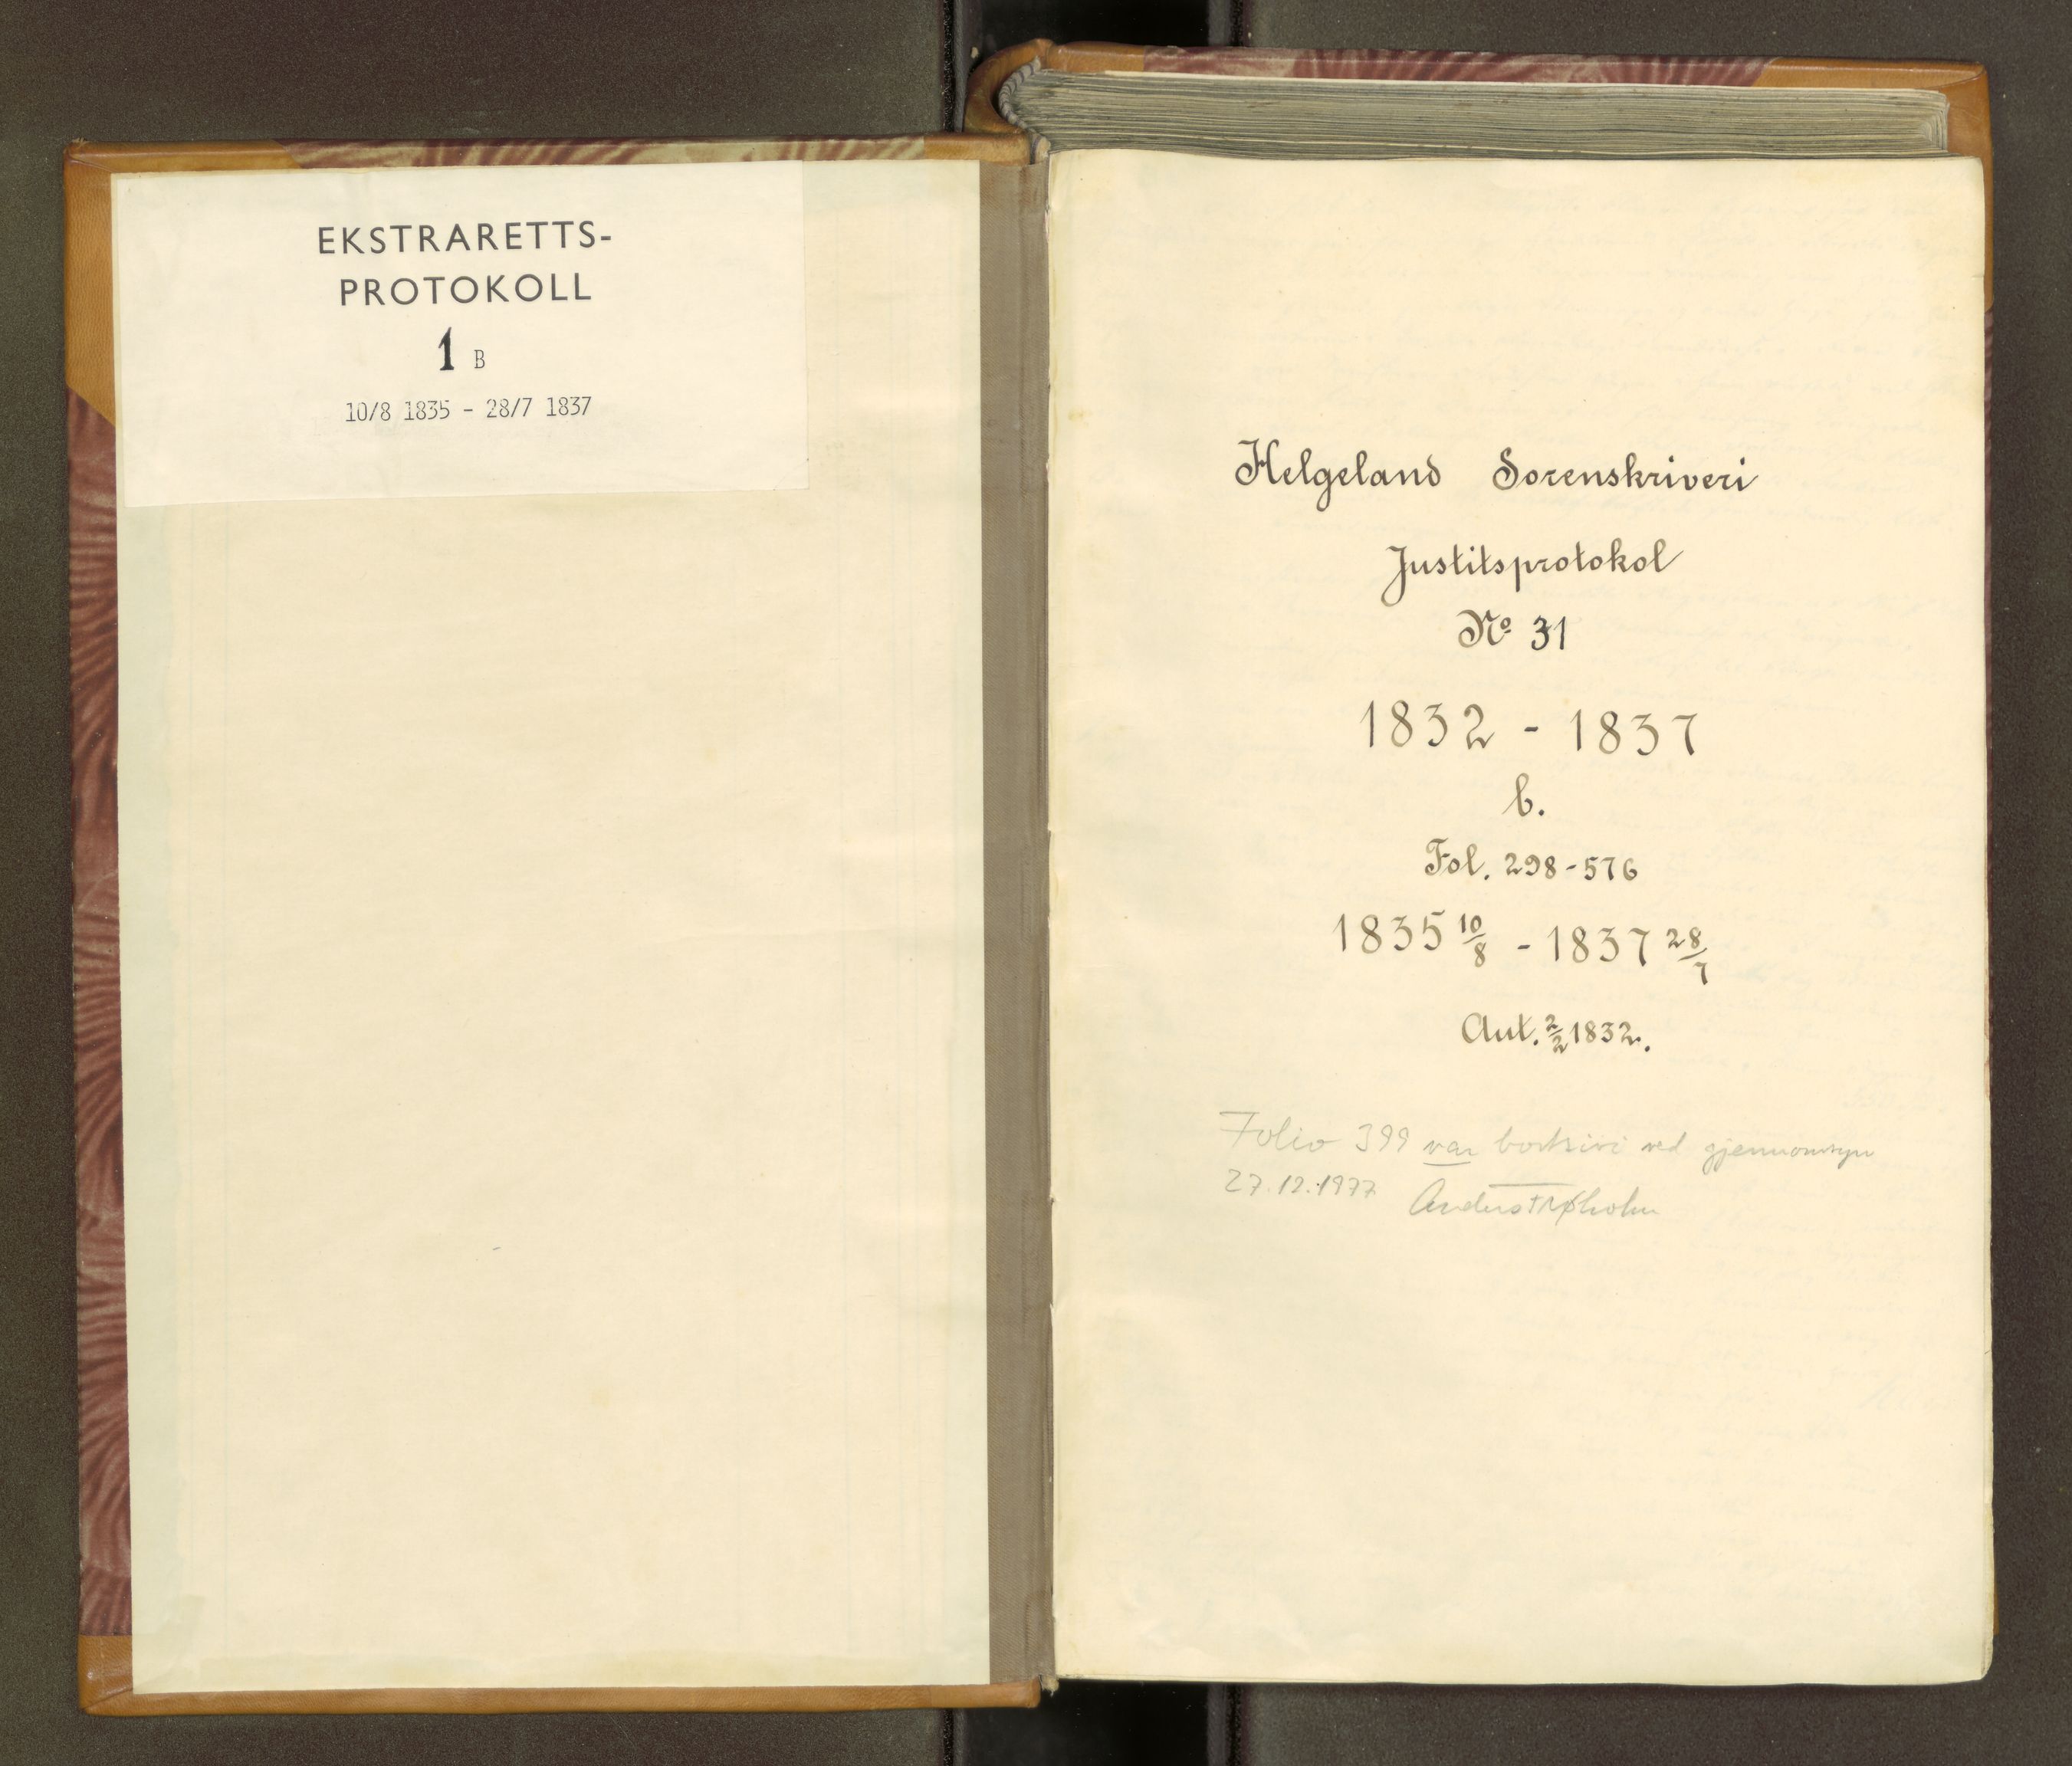 EKSTRARETTS-
PROTOKOLL
1 B
10/8 1835 - 28/7 1837
Helgeland Sorenskriveri
Justitsprotokol
Nº 31
1832 - 1837
b.
Fol. 298-576
1835 10/8 - 1837 28/7
Aut. 2/2 1832.
Folio 399 var ved
27.12.1977